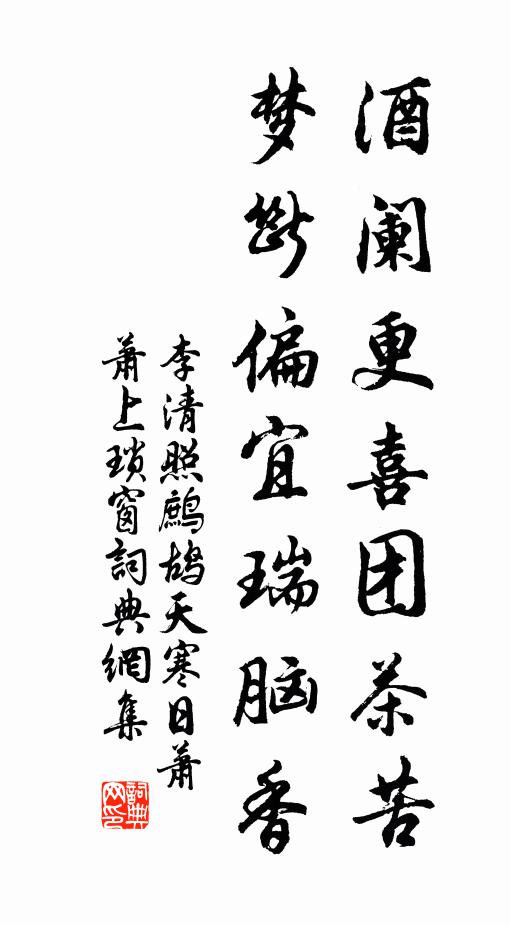 酒阑更喜团茶苦
梦断偏宜瑞脑香
李清照鹧鸪天寒日萧
萧上琐窗詞典網集
詞典网印